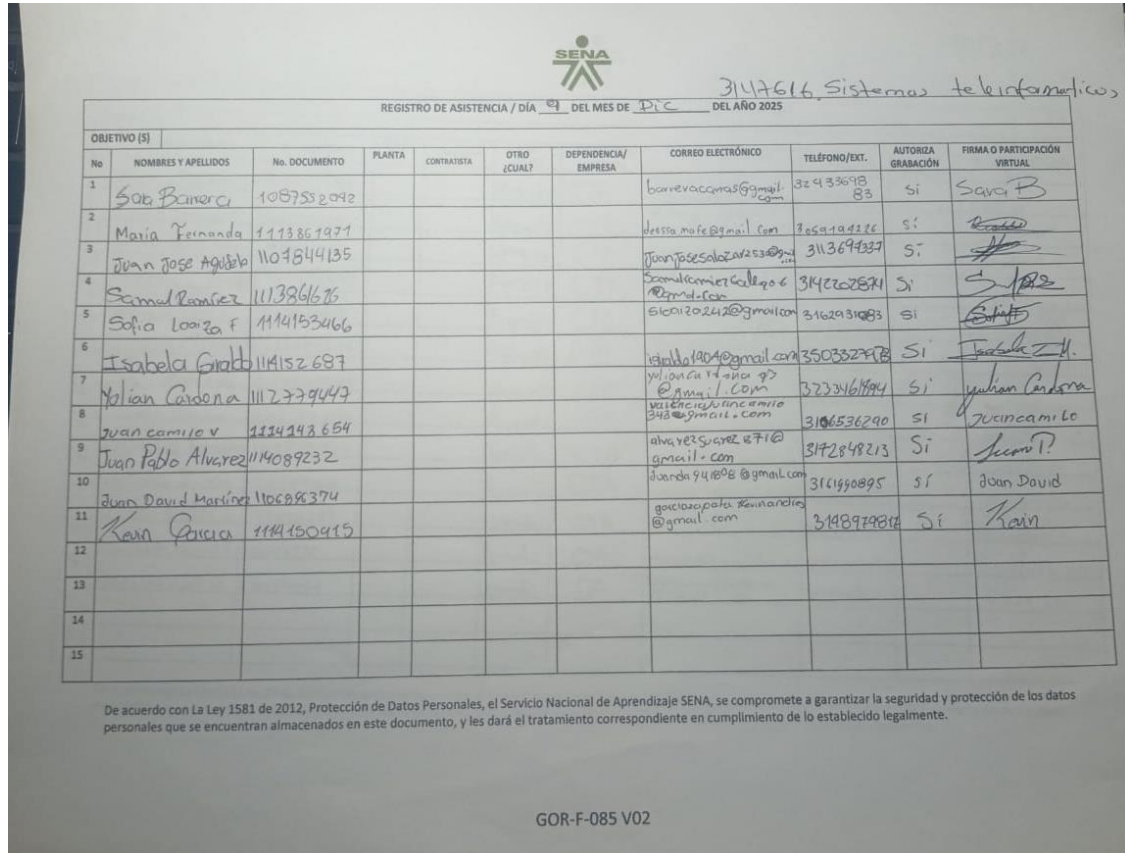 SENA
3147616 Sistemas teleinformaticos
REGISTRO DE ASISTENCIA / DÍA 9 DEL MES DE Dic DEL AÑO 2025
OBJETIVO (S)
No NOMBRES Y APELLIDOS No. DOCUMENTO PLANTA CONTRATISTA OTRO ¿CUAL? DEPENDENCIA/ EMPRESA CORREO ELECTRÓNICO TELÉFONO/EXT. AUTORIZA GRABACIÓN FIRMA O PARTICIPACIÓN VIRTUAL
1 Sara Barrera 1087552092 3293369883 Si Sara B
2 Maria Fernanda 1113861971 dessa.mafe@gmail.com 3059194226 Sí
3 Juan Jose Agudelo 1107844135 3113694337 Sí
4 Samuel Ramírez 1113861626 3142202871 Si
5 Sofia Loaiza F 1114153466 sloaiza242@gmail.com 3162931083 Si
6 Isabela Giraldo 1114152687 igiraldo1904@gmail.com 3503327778 Si
7 Yolian Cardona 1112779447 3233461894 Si yulian Cardona
8 Juan camilo v 1114143.654 valenciajuancamilo343@gmail.com 3106536290 SI Juancamilo
9 Juan Pablo Alvarez 1114089232 alvarezsuarez871@gmail.com 3172848213 Si Juan P.
10 Juan David Martinez 1106896374 Juanda941808@gmail.com 3161990895 sí Juan David
11 Kevin Garcia 1114150915 garciazapata kevinandres@gmail.com 3148979812 Sí Kevin
12
13
14
15
De acuerdo con La Ley 1581 de 2012, Protección de Datos Personales, el Servicio Nacional de Aprendizaje SENA, se compromete a garantizar la seguridad y protección de los datos
personales que se encuentran almacenados en este documento, y les dará el tratamiento correspondiente en cumplimiento de lo establecido legalmente.
GOR-F-085 V02